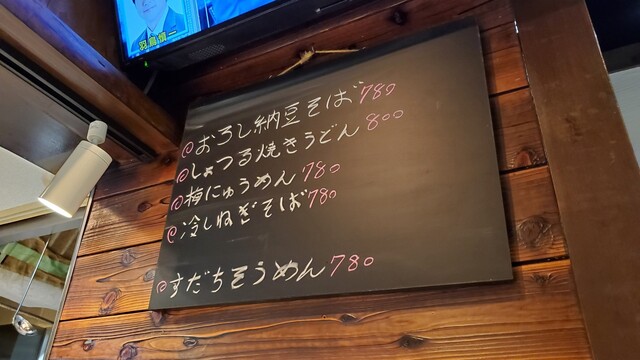 羽鳥慎一
@おろし納豆そば780
@しょつる焼きうどん800
@梅にゅうめん780
@冷しねぎそば780
@すだちそうめん780